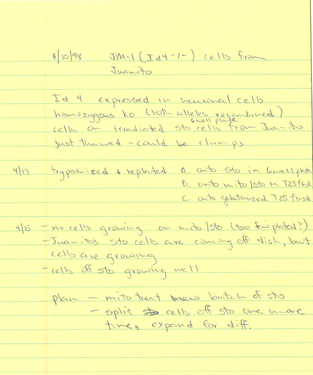 4/10/98 JM-1 (Id4-/-) cells from
Juanito
Id 4 expressed in neuronal cells
homozygous ko (both alleles
6 well plate
cells on irradiated sto cells from Juanito
just thawed - could be clumps
4/13 trypsinized & replated A. onto sto in 6 well plate
B. onto mito/sto in T25 flask
C. onto gelatinized T25 flask
4/15 - no cells growing on mito/sto (too few plated?)
- Juanito's sto cells are coming off dish, but
cells are growing
- cells off sto growing well
plan - mito treat new batch of sto
- split cells off sto one more
time, expand for diff.